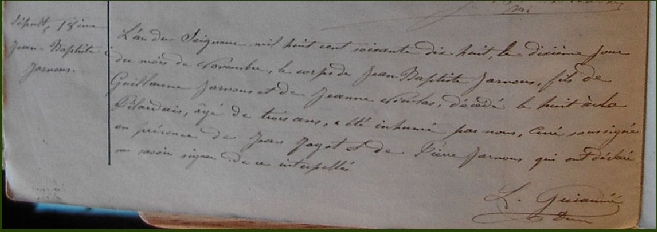 Sépult, 18ème
Jean-Baptiste
Jarnoux.
L'an du Seigneur mil huit cent soixante dix huit, le dixième jour
du mois de Novembre, le corps de Jean Baptiste Jarnoux, fils de
Guillaume Jarnoux et de Jeanne décédé le huit à la
âgé de trois ans, a été inhumé par nous, curé soussigné
en présence de Jean et de Pierre Jarnoux qui ont déclaré
ne savoir signer de ce interpellé
L.